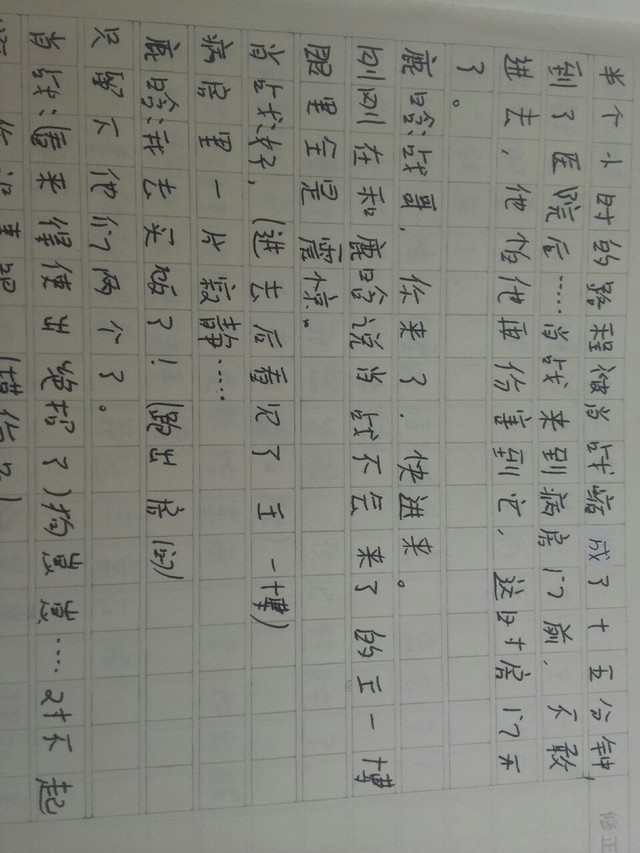 半个小时的路程被肖战缩成了十五分钟,
到了医院后……肖战来到病房门前,不敢
进去,他怕他再伤害到它,这时房门开
了。
鹿晗:战哥,你来了,快进来。
刚刚在和鹿晗说肖战不会来了的王一博
眼里全是震惊。
肖战:好,(进去后看见了王一博)
病房里一片寂静……
鹿晗:我去买饭了!(跑出房间)
只留下他们两个了。
肖战:(看来得使出绝招了)狗崽崽……对不起